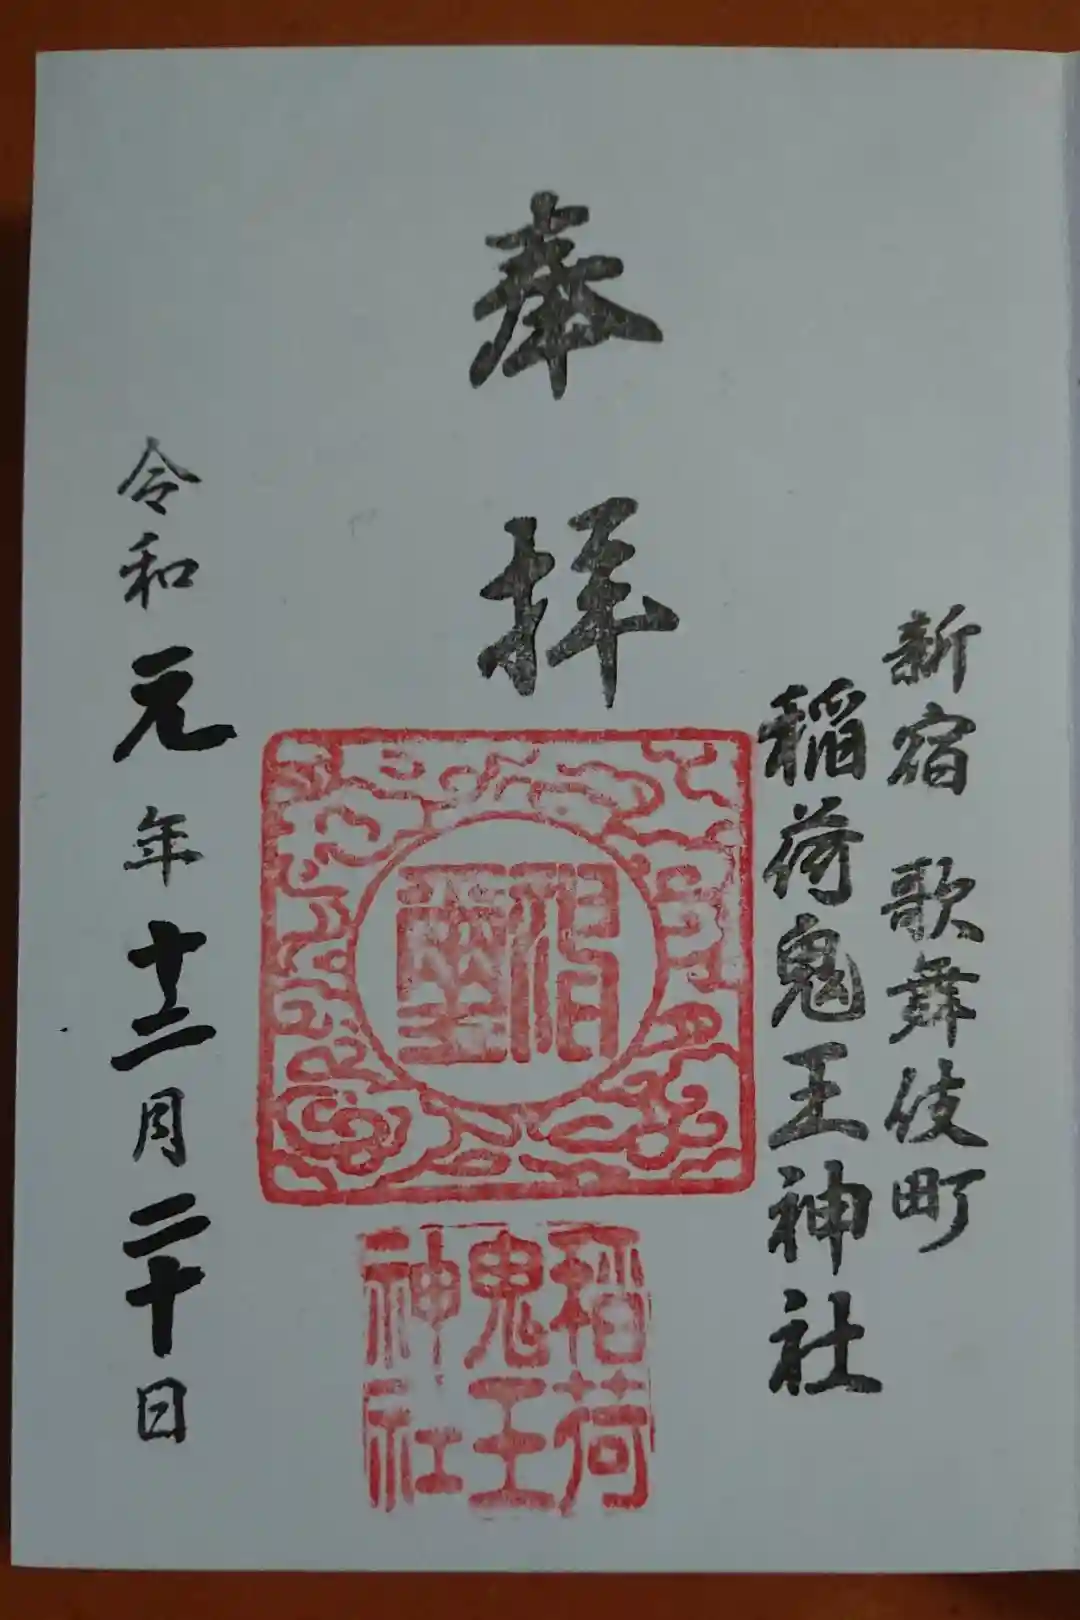 新宿 歌舞伎町
稲荷鬼王神社
奉拝
稲荷
鬼王
神社
令和元年十二月二十日